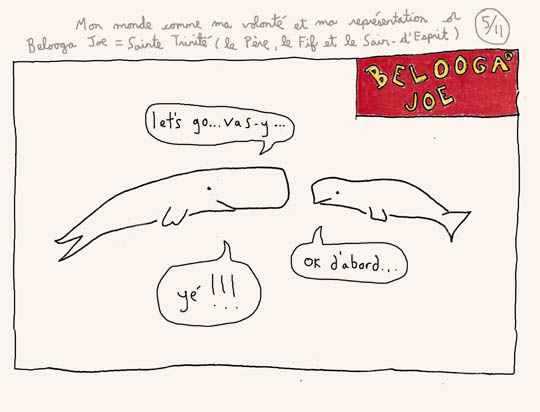 Mon monde comme ma volonté et ma représentation or
Belooga Joe = Sainte Trinité (le Père, le Fif et le Sain-d'Esprit)
5/11
BELOOGA
JOE
let's go...vas-y...
ok d'abord...
yé !!!